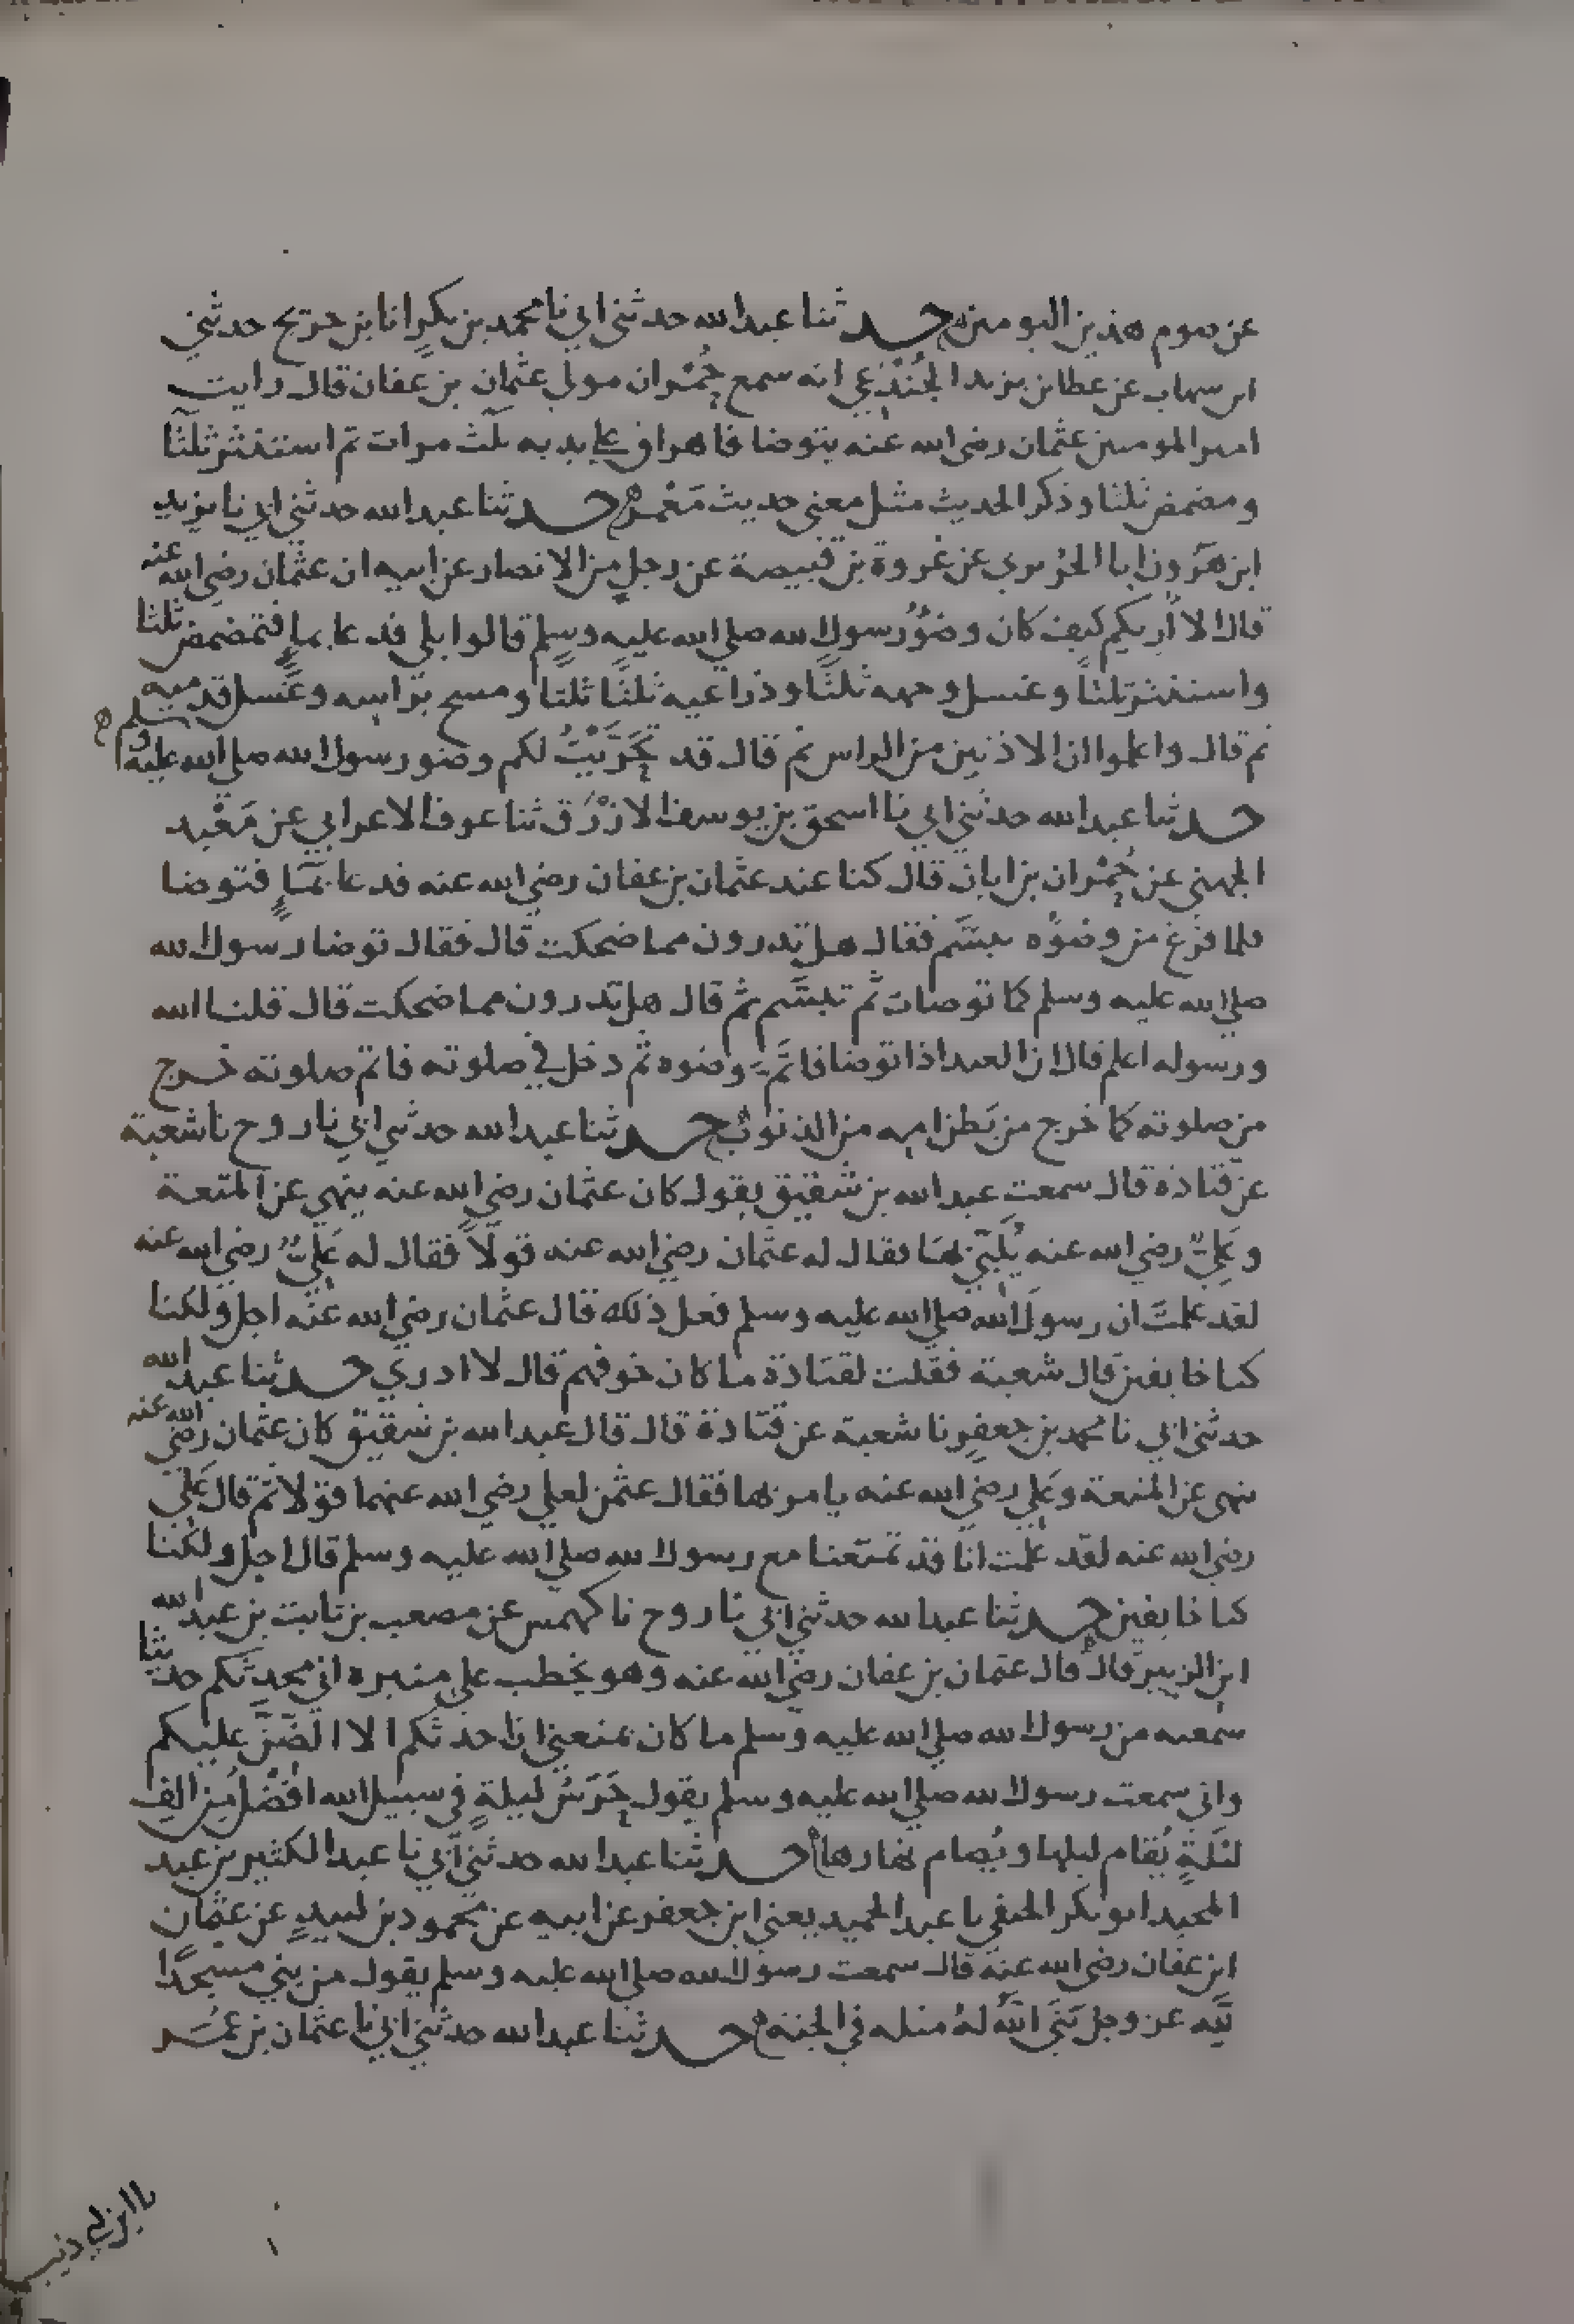 عن صوم هذين اليومين حدثنا عبد الله حدثني ابي نا محمد بن بكر انا ابن جريج حدثني
ابن شهاب عن عطا بن يزيد الجندعي انه سمع حمران مولى عثمان بن عفان قال رايت
امير المومنين عثمان رضي الله عنه يتوضا فاهراق على يديه ثلث مرات ثم استنثر ثلثا
ومضمض ثلثا وذكر الحديث مثل معنى حديث معمر حدثنا عبد الله حدثني ابي نا يزيد
ابن هرون انا الجريري عن عروة بن قبيصة عن رجل من الانصار عن ابيه ان عثمان رضي الله عنه
قال الا اريكم كيف كان وضوء رسول الله صلى الله عليه وسلم قالوا بلى فدعا بماء فتمضمض ثلثا
واستنثر ثلثا وغسل وجهه ثلثا وذراعيه ثلثا ثلثا ومسح براسه وغسل قدميه
ثم قال واعلموا ان الاذنين من الراس ثم قال قد تحريت لكم وضو رسول الله صلى الله عليه وسلم
حدثنا عبد الله حدثني ابي نا اسحق بن يوسف الازرق ثنا عوف الاعرابي عن معبد
الجهني عن حمران بن ابان قال كنا عند عثمان بن عفان رضي الله عنه فدعا بماء فتوضا
فلما فرغ من وضوه تبسم فقال هل تدرون مما ضحكت قال فقال توضا رسول الله
صلى الله عليه وسلم كما توضات ثم تبسم ثم قال هل تدرون مما ضحكت قال قلنا الله
ورسوله اعلم قال ان العبد اذا توضا فاتم وضوه ثم دخل في صلوته فاتم صلوته خرج
من صلوته كما خرج من بطن امه من الذنوب حدثنا عبد الله حدثني ابي نا روح نا شعبة
عن قتادة قال سمعت عبد الله بن شقيق يقول كان عثمان رضي الله عنه ينهى عن المتعة
وعلي رضي الله عنه يلبي بها فقال له عثمان رضي الله عنه قولا فقال له علي رضي الله عنه
لقد علمت ان رسول الله صلى الله عليه وسلم فعل ذلك قال عثمان رضي الله عنه اجل ولكنا
كنا خايفين قال شعبة فقلت لقتادة ما كان خوفهم قال لا ادري حدثنا عبد الله
حدثني ابي نا محمد بن جعفر نا شعبة عن قتادة قال قال عبد الله بن شقيق كان عثمان رضي الله عنه
ينهى عن المتعة وعلي رضي الله عنه يامر بها فقال عثمن لعلي رضي الله عنهما قولا ثم قال علي
رضي الله عنه لقد علمت انا قد تمتعنا مع رسول الله صلى الله عليه وسلم قال اجل ولكنا
كنا خايفين حدثنا عبد الله حدثني ابي نا روح نا كهمس عن مصعب بن ثابت بن عبد الله
ابن الزبير قال قال عثمان بن عفان رضي الله عنه وهو يخطب على منبره اني محدثكم حديثا
سمعته من رسول الله صلى الله عليه وسلم ما كان يمنعني ان احدثكم الا الضن عليكم
واني سمعت رسول الله صلى الله عليه وسلم يقول حرس ليلة في سبيل الله افضل من الف
ليلة يقام ليلها ويصام نهارها حدثنا عبد الله حدثني ابي نا عبد الكبير بن عبد
المجيد ابو بكر الحنفي نا عبد الحميد يعني ابن جعفر عن ابيه عن محمود بن لبيد عن عثمان
ابن عفان رضي الله عنه قال سمعت رسول الله صلى الله عليه وسلم يقول من بنى مسجدا
لله عز وجل بنى الله له مثله في الجنة حدثنا عبد الله حدثني ابي نا عثمان بن عمر
نا ابن ابي ذئب